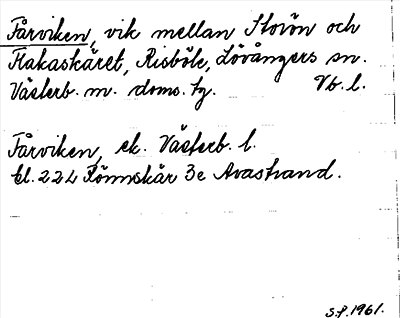 Fårviken, vik mellan Storön och
Flakaskäret, Risböle, Lövångers sn.
Västerb. m. doms. tg. Vb. l.
Fårviken, ek. Västerb. l.
bl. 224 Rönnskär 3e Avastrand.
S.P. 1961.